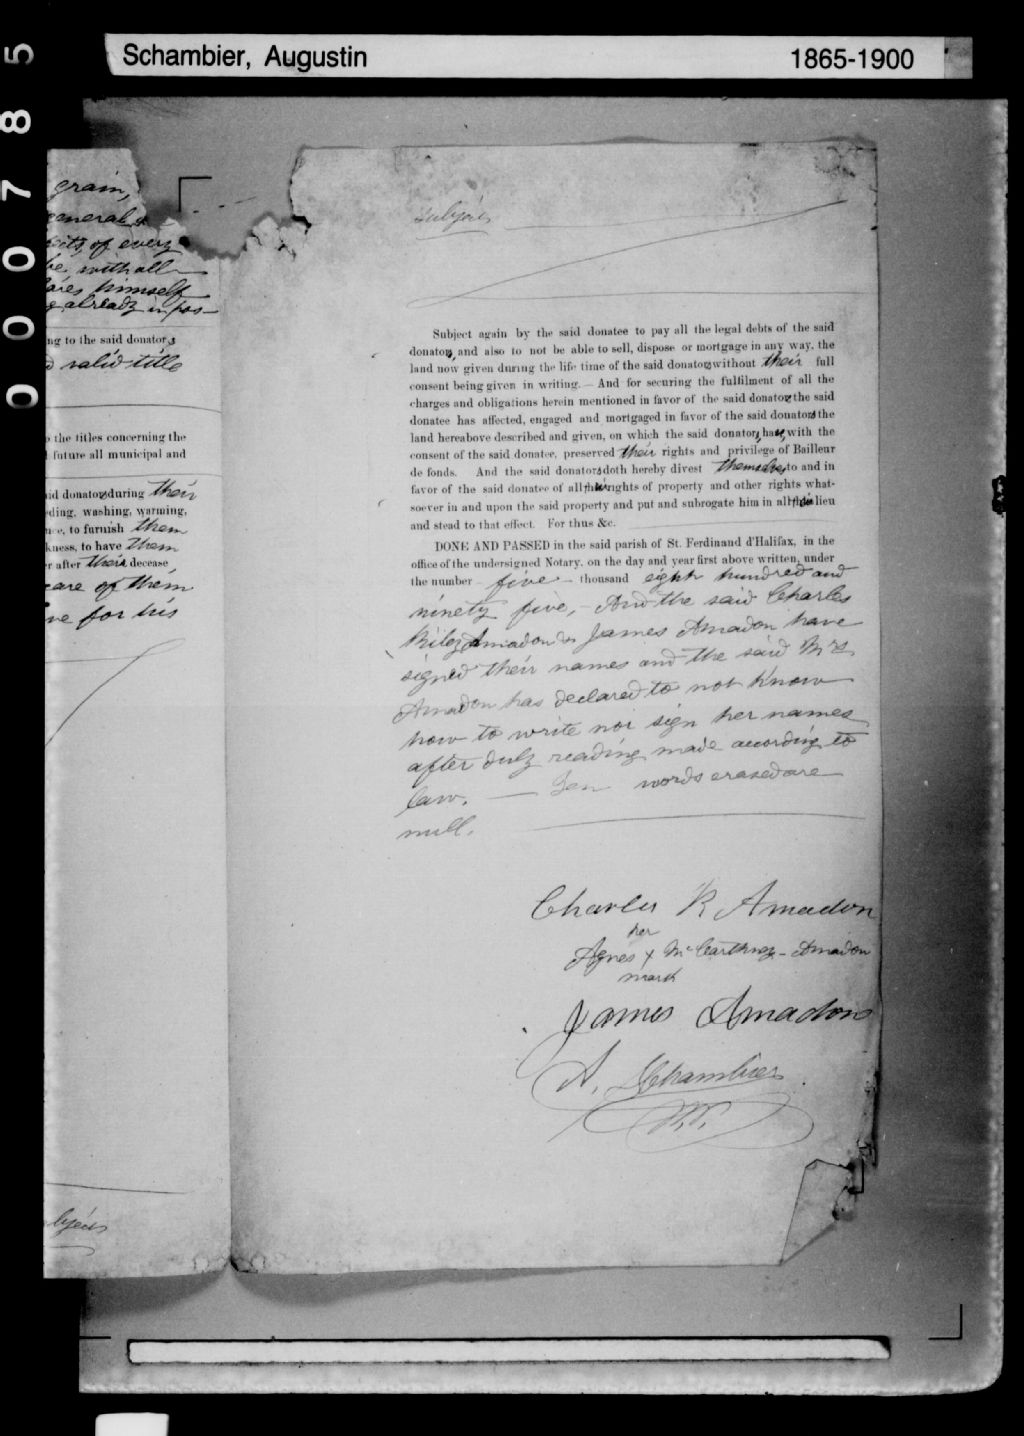 Schambier, Augustin 1865-1900
000785
grain,
general &
of every
be, with all
himself
already in pos-
ng to the said donators
valid title
o the titles concerning the
future all municipal and
id donators during their
ding, washing, warming,
nce, to furnish them
kness, to have them
r after their decease
care of them
ve for his
bjects
subjects
Subject again by the said donatee to pay all the legal debts of the said
donators, and also to not be able to sell, dispose or mortgage in any way, the
land now given during the life time of the said donators without their full
consent being given in writing.— And for securing the fulfilment of all the
charges and obligations herein mentioned in favor of the said donators the said
donatee has affected, engaged and mortgaged in favor of the said donators the
land hereabove described and given, on which the said donators have, with the
consent of the said donatee, preserved their rights and privilege of Bailleur
de fonds. And the said donators doth hereby divest themselves to and in
favor of the said donatee of all their rights of property and other rights what-
soever in and upon the said property and put and subrogate him in all their lieu
and stead to that effect. For thus &c.
DONE AND PASSED in the said parish of St. Ferdinand d'Halifax, in the
office of the undersigned Notary, on the day and year first above written, under
the number five - thousand eight hundred and
ninety five,- And the said Charles
Riley Amadon & James Amadon have
signed their names and the said Mrs
Amadon has declared to not know
how to write nor sign her names
after duly reading made according to
law. — Ten words erased are
null.
Charles R Amadon
her
Agnes x McCarthy - Amadon
mark
James Amadon
A. Schambier
N.P.